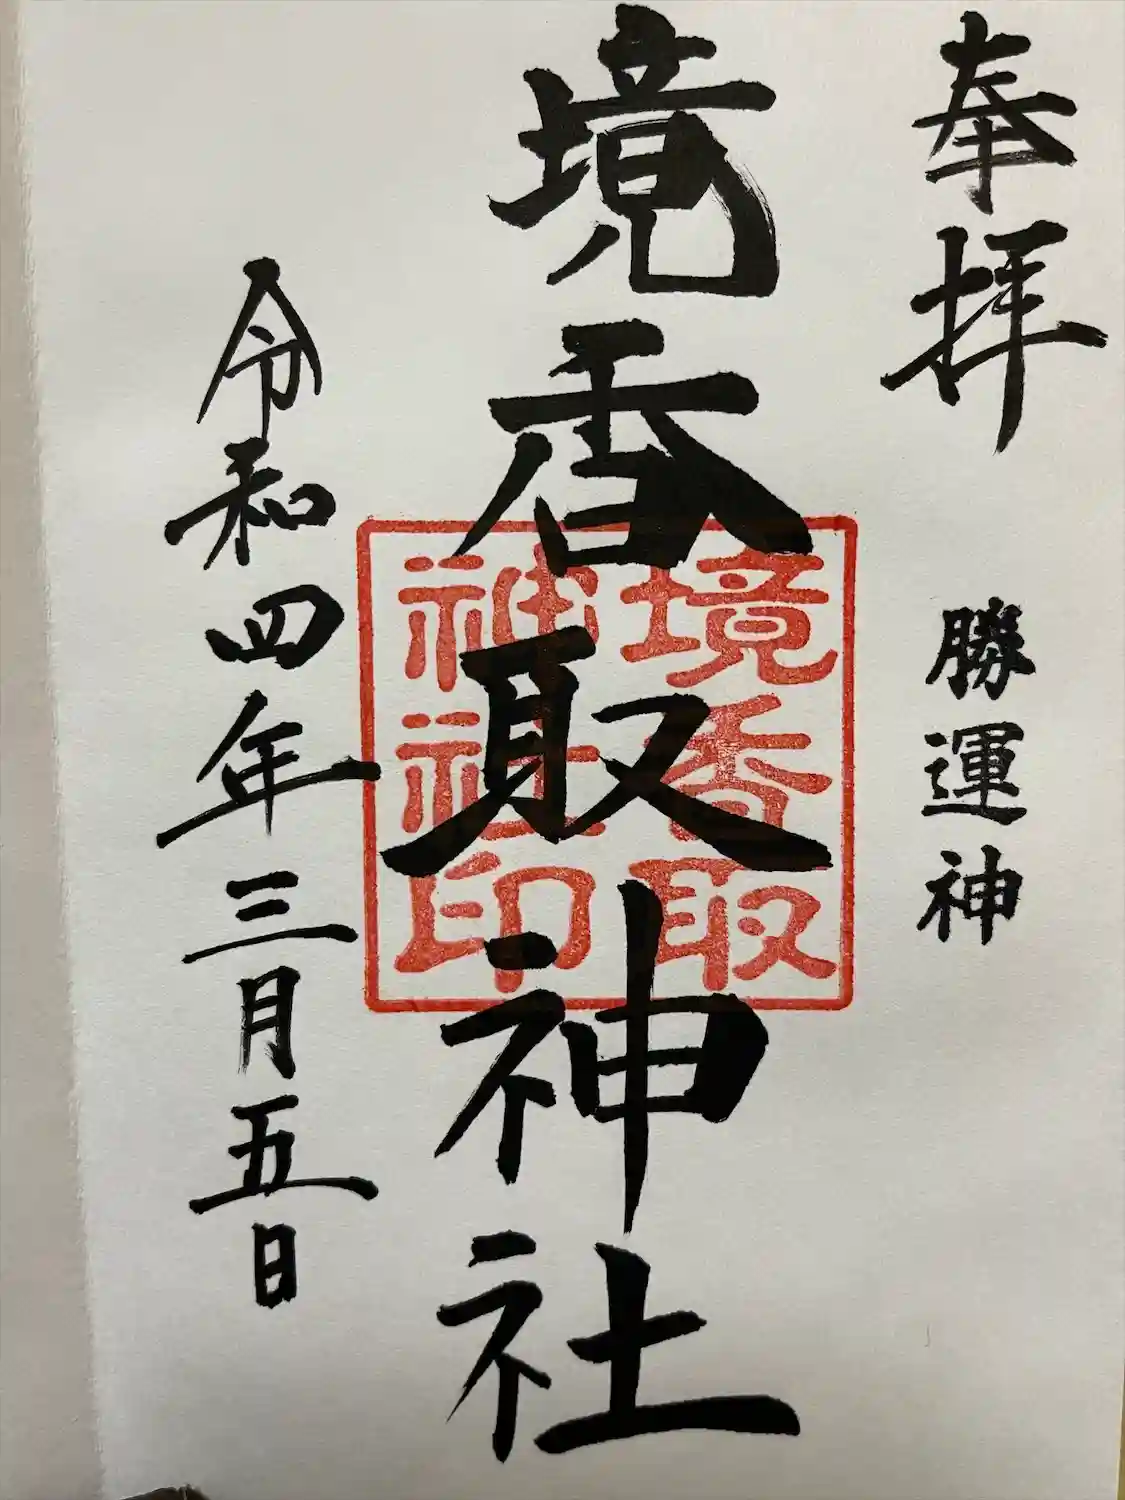 奉拝
勝運神
境香取神社
境香取
神社印
令和四年三月五日